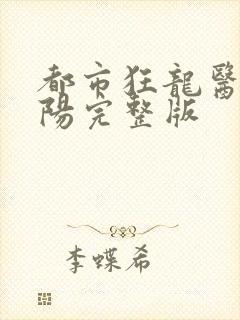 都市狂龍醫
陽完整版
李蝶希